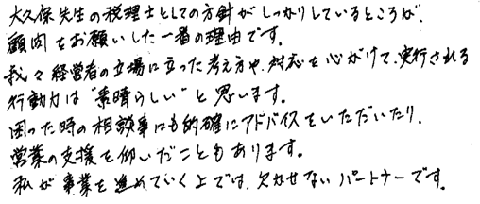 大久保先生の税理士としての方針がしっかりしているところが、
顧問をお願いした一番の理由です。
我々経営者の立場に立った考え方や、対応を心がけて、実行される
行動力は"素晴らしい"と思います。
困った時の相談事にも的確にアドバイスをいただいたり、
営業の支援を仰いだこともあります。
私が事業を進めていく上では、欠かせないパートナーです。